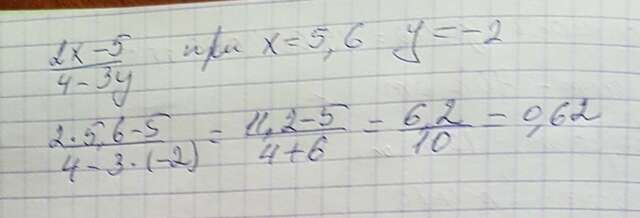 (2x-5)/(4-3y) при x=5,6 y=-2
(2·5,6-5)/(4-3·(-2)) = (11,2-5)/(4+6) = 6,2/10 = 0,62